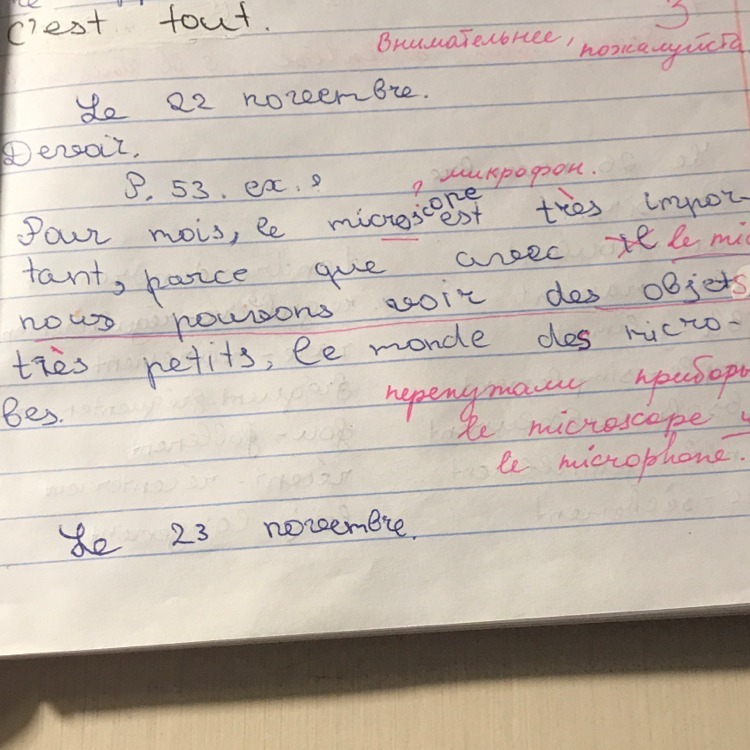 C'est tout.
3
Внимательнее, пожалуйста
Le 22 novembre.
Devoir.
P. 53. ex.
? микрофон.
Pour mois, le microscope est très impor-
tant, parce que avec le mic
nous pouvons voir des objets
très petits, le monde des micro-
bes.
перепутали приборы
le microscope и
le microphone.
Le 23 novembre.